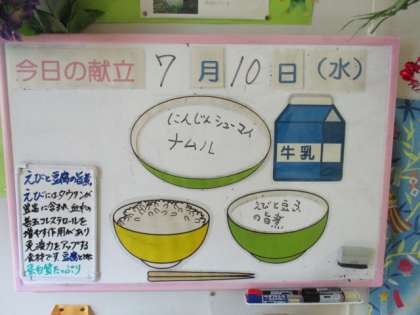 今日の献立 7月10日(水)
にんじんシューマイ
ナムル
牛乳
えびと豆腐
の旨煮
えびと豆腐の旨煮
えびにはタウリンが
豊富に含まれ、血中の
善玉コレステロールを
増やす作用があり
免疫力をアップする
食材です。豆腐と共に
蛋白質たっぷり